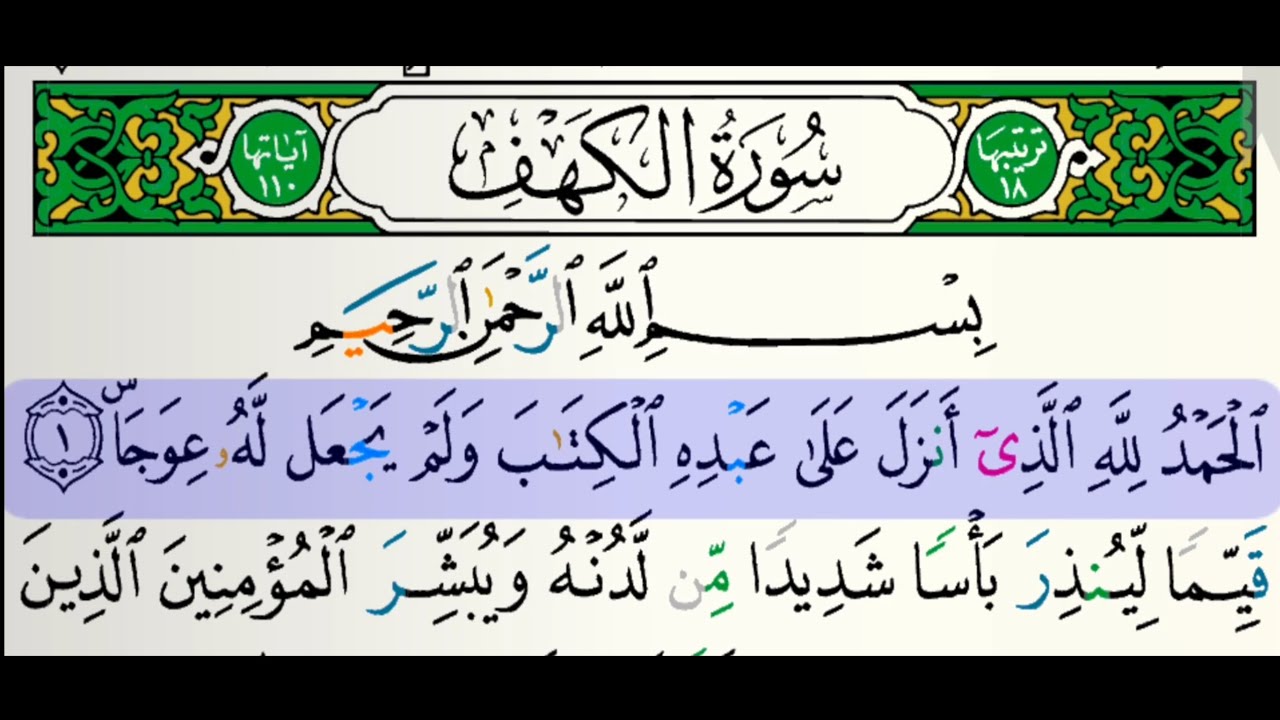 ترتيبها ١٨
سُورَةُ الكَهْفِ
آياتها ١١٠
بِسْمِ ٱللَّهِ ٱلرَّحْمَٰنِ ٱلرَّحِيمِ
ٱلْحَمْدُ لِلَّهِ ٱلَّذِىٓ أَنزَلَ عَلَىٰ عَبْدِهِ ٱلْكِتَٰبَ وَلَمْ يَجْعَل لَّهُۥ عِوَجَاۜ ١
قَيِّمًا لِّيُنذِرَ بَأْسًا شَدِيدًا مِّن لَّدُنْهُ وَيُبَشِّرَ ٱلْمُؤْمِنِينَ ٱلَّذِينَ